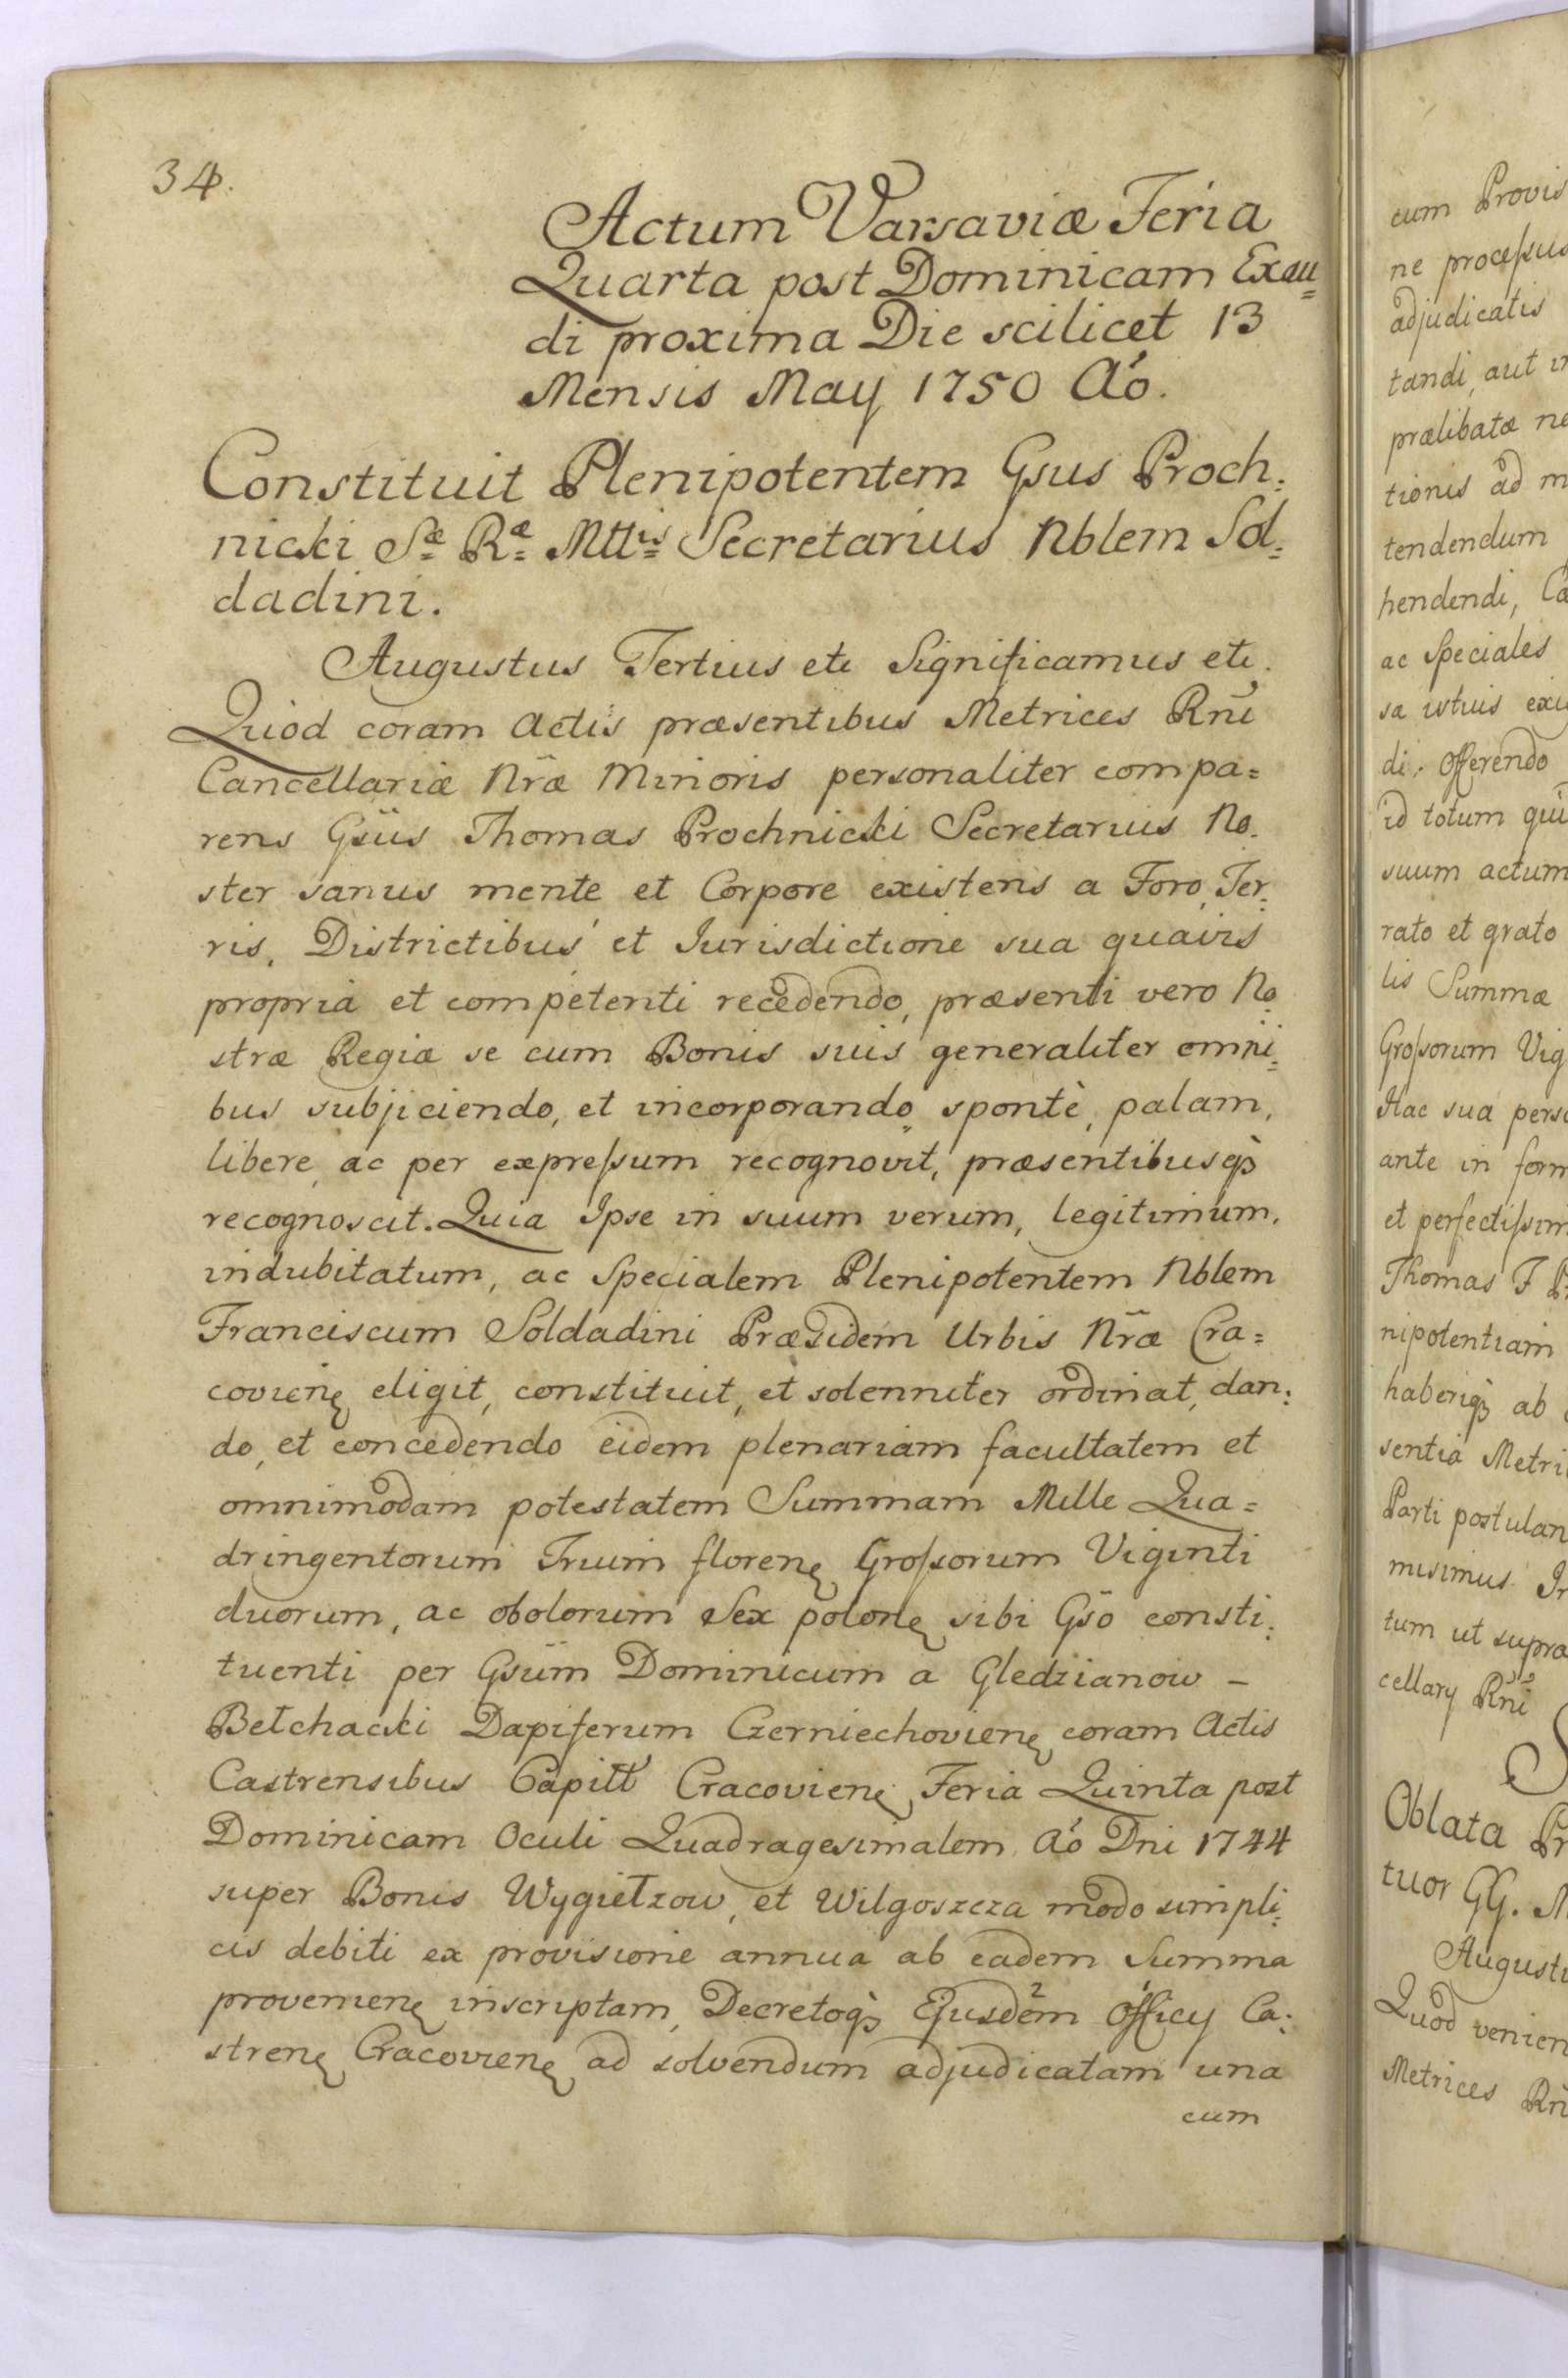 34.
Actum Varsaviæ Feria
Quarta post Dominicam Exau=
di proxima Die scilicet 13
Mensis May 1750 Aó.
Constituit Plenipotentem Gsus Proch=
nicki Sæ Ræ Mttis Secretarius Nblem Sol=
dadini.
Augustus Tertius etc Significamus etc.
Quod coram Actis præsentibus Metrices Rni
Cancellariæ Nræ Minoris personaliter compa=
rens Gsus Thomas Prochnicki Secretarius No=
ster sanus mente et Corpore existens a Foro, Ter=
ris, Districtibus et Jurisdictione sua quavis
propria et competenti recedendo, præsenti vero No=
stræ Regiæ se cum Bonis suis generaliter omni=
bus subjiciendo, et incorporando, sponte, palam,
libere ac per expressum recognovit, præsentibusq3
recognoscit. Quia Ipse in suum verum, legitimum,
indubitatum, ac Specialem Plenipotentem Nblem
Franciscum Soldadini Præsidem Urbis Nræ Cra=
coviene eligit, constituit, et solenniter ordinat, dan=
do, et concedendo eidem plenariam facultatem et
omnimodam potestatem Summam Mille Qua=
dringentorum Trium florene Grossorum Viginti
duorum, ac obolorum Sex polone sibi Gso consti=
tuenti per Gsum Dominicum a Gledzianow –
Bełchacki Dapiferum Czerniechoviene coram Actis
Castrensibus Capitt Cracoviene Feria Quinta post
Dominicam Oculi Quadragesimalem Aó Dni 1744
super Bonis Wygiełzow, et Wilgoszcza modo simpli=
cis debiti ex provisione annua ab eadem Summa
proveniene inscriptam, Decretoq3 Ejusdem Officy Ca=
strene Cracoviene ad solvendum adjudicatam una
cum
cum Provis
ne processus
adjudicatis
tandi, aut in
prælibatæ ne
tionis ad m
tendendum
hendendi, Ca
ac Speciales
sa istius exi
di. Offerendo
id totum qui
suum actum
rato et grato
lis Summæ
Grossorum Vig
Hac sua perso
ante in form
et perfectissim
Thomas F P
nipotentiam
haberiq3 ab
sentia Metri
Parti postulan
misimus. In
tum ut supra
cellary Rni
Oblata Pr
tuor GG. M
Augustu
Quod venien
Metrices Rni